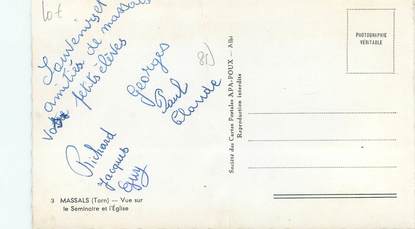 lot
Souvenirs et
amitiés de massals
Vos petits élèves
Georges
Paul
Claude
81)
Richard
Jacques
Guy
3 MASSALS (Tarn) — Vue sur
le Séminaire et l'Église
Société des Cartes Postales APA-POUX - Albi
Reproduction interdite
PHOTOGRAPHIE
VÉRITABLE